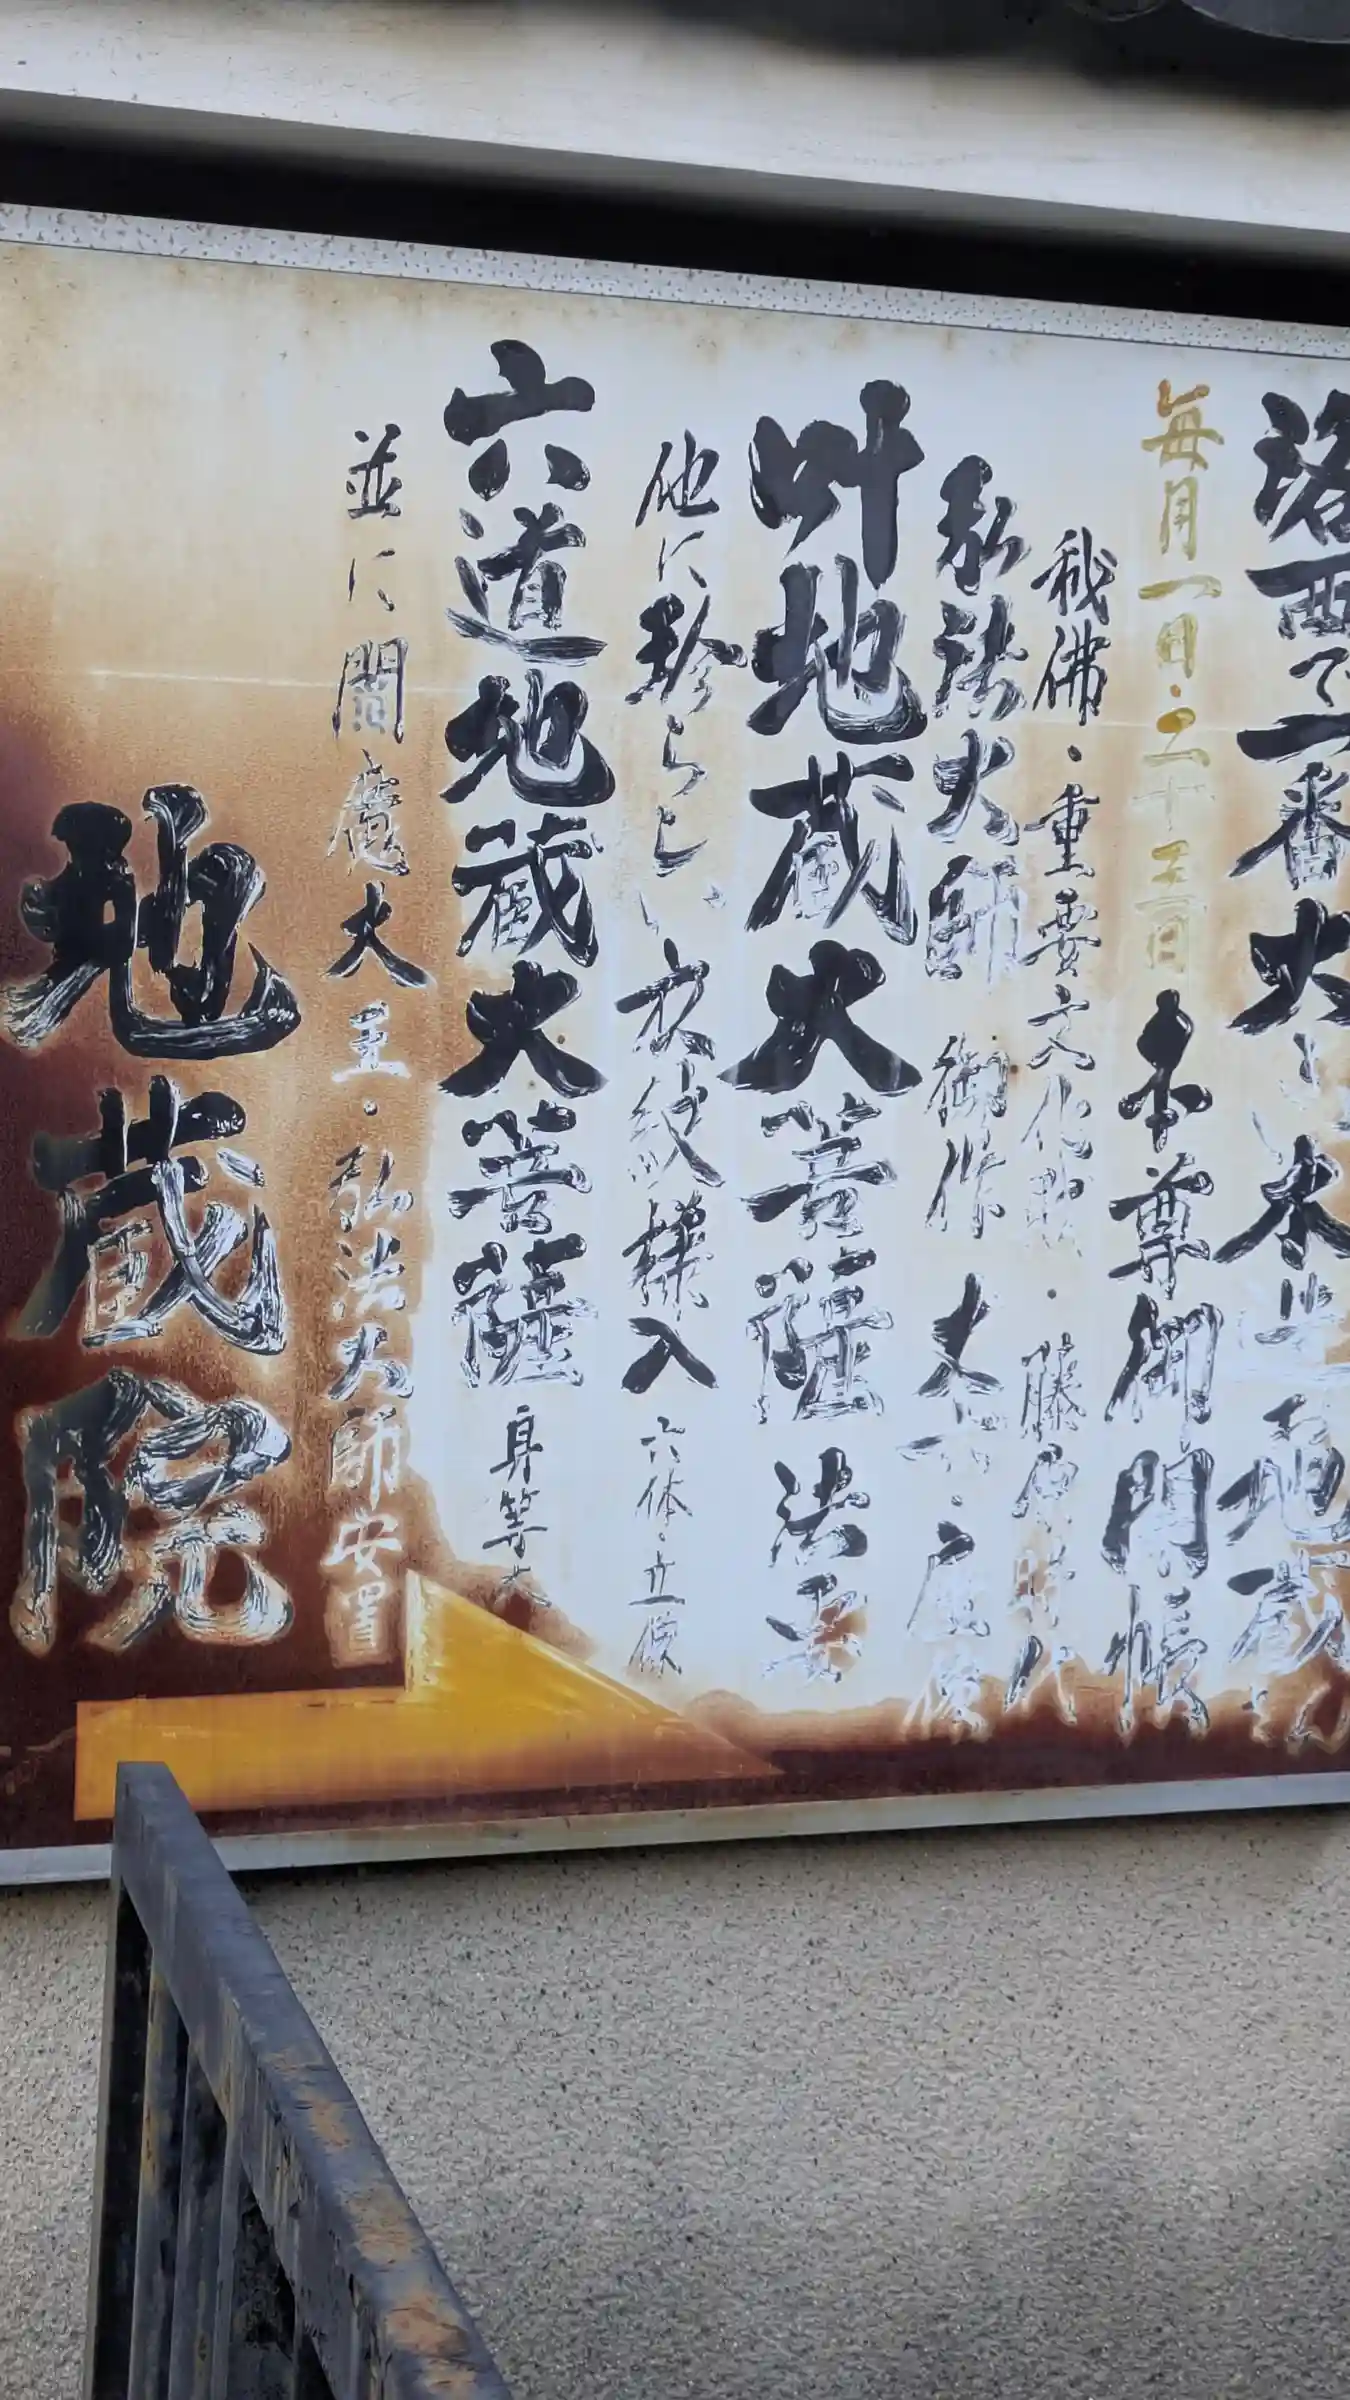 洛西で一番大きい木造地蔵
毎月一日・二十三日
本尊御開帳
秘佛・重要文化財・藤原時代
弘法大師 御作 丈六・座像
叶地蔵大菩薩 法要
他に珍らしい衣紋様入 六体・立像
六道地蔵大菩薩 身等大
並に閻魔大王・弘法大師安置
地蔵院